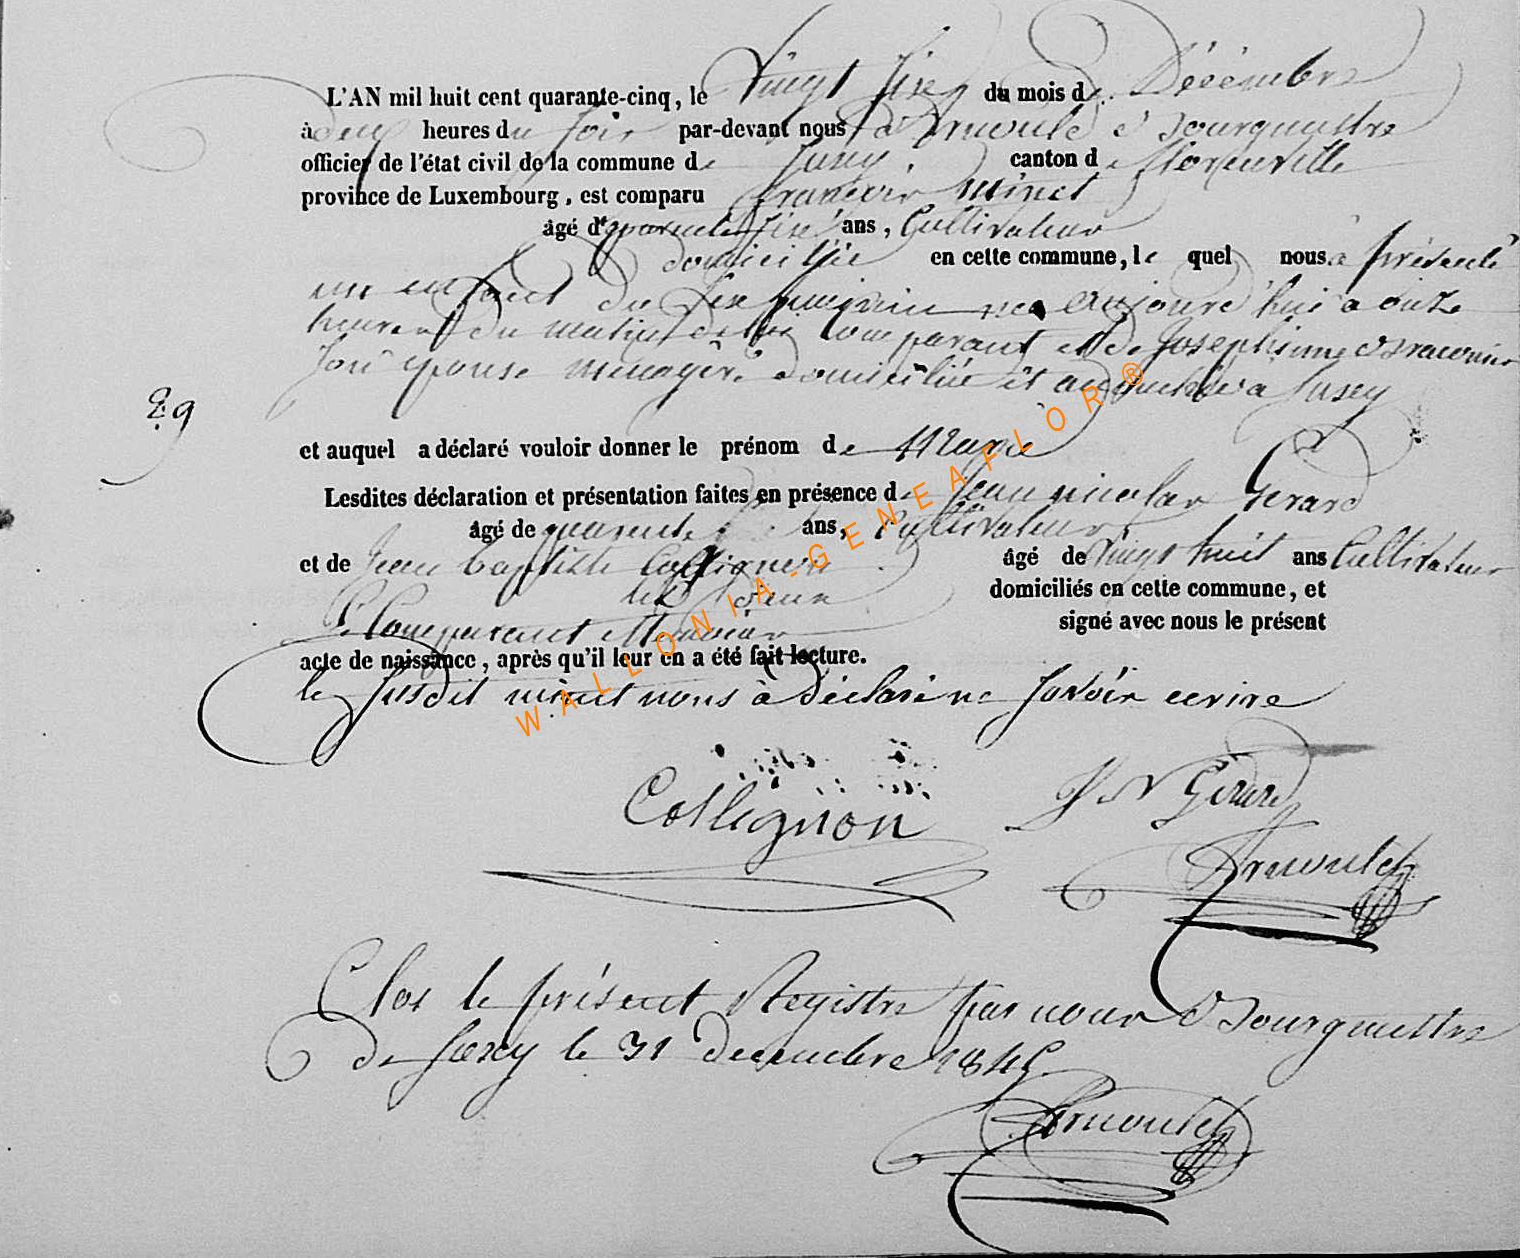 L'AN mil huit cent quarante-cinq, le Vingt Six du mois de Décémbre
à deux heures du soir par-devant nous Arnould Bourguestre
officier de l'état civil de la commune de Jusey canton de Florenville
province de Luxembourg, est comparu francoir Minet
âgé de quarante Six ans, Cultivateur
domiciliée en cette commune, le quel nous a présenté
un enfant du Sexe née aujourd'hui a onze
heures du matin de lui comparant et de Josephinne
Son épouse ménagère domiciliée et a Jusey
29
et auquel a déclaré vouloir donner le prénom de Marie
Lesdites déclaration et présentation faites en présence de Jean nicolas Gerard
âgé de quarente ans, Cultivateur
et de Jean baptiste Collignon âgé de Vingt huit ans Cultivateur
les deux domiciliés en cette commune, et
Comparant et temoins signé avec nous le présent
acte de naissance, après qu'il leur en a été fait lecture.
le susdit minet nous à déclaré ne savoir ecrire
WALLONIA-GENEAFLOR®
Collignon J N Gérard
Arnould
Clos le présent Registre par nous Bourguestre
de Jusey le 31 decembre 1845
Arnould